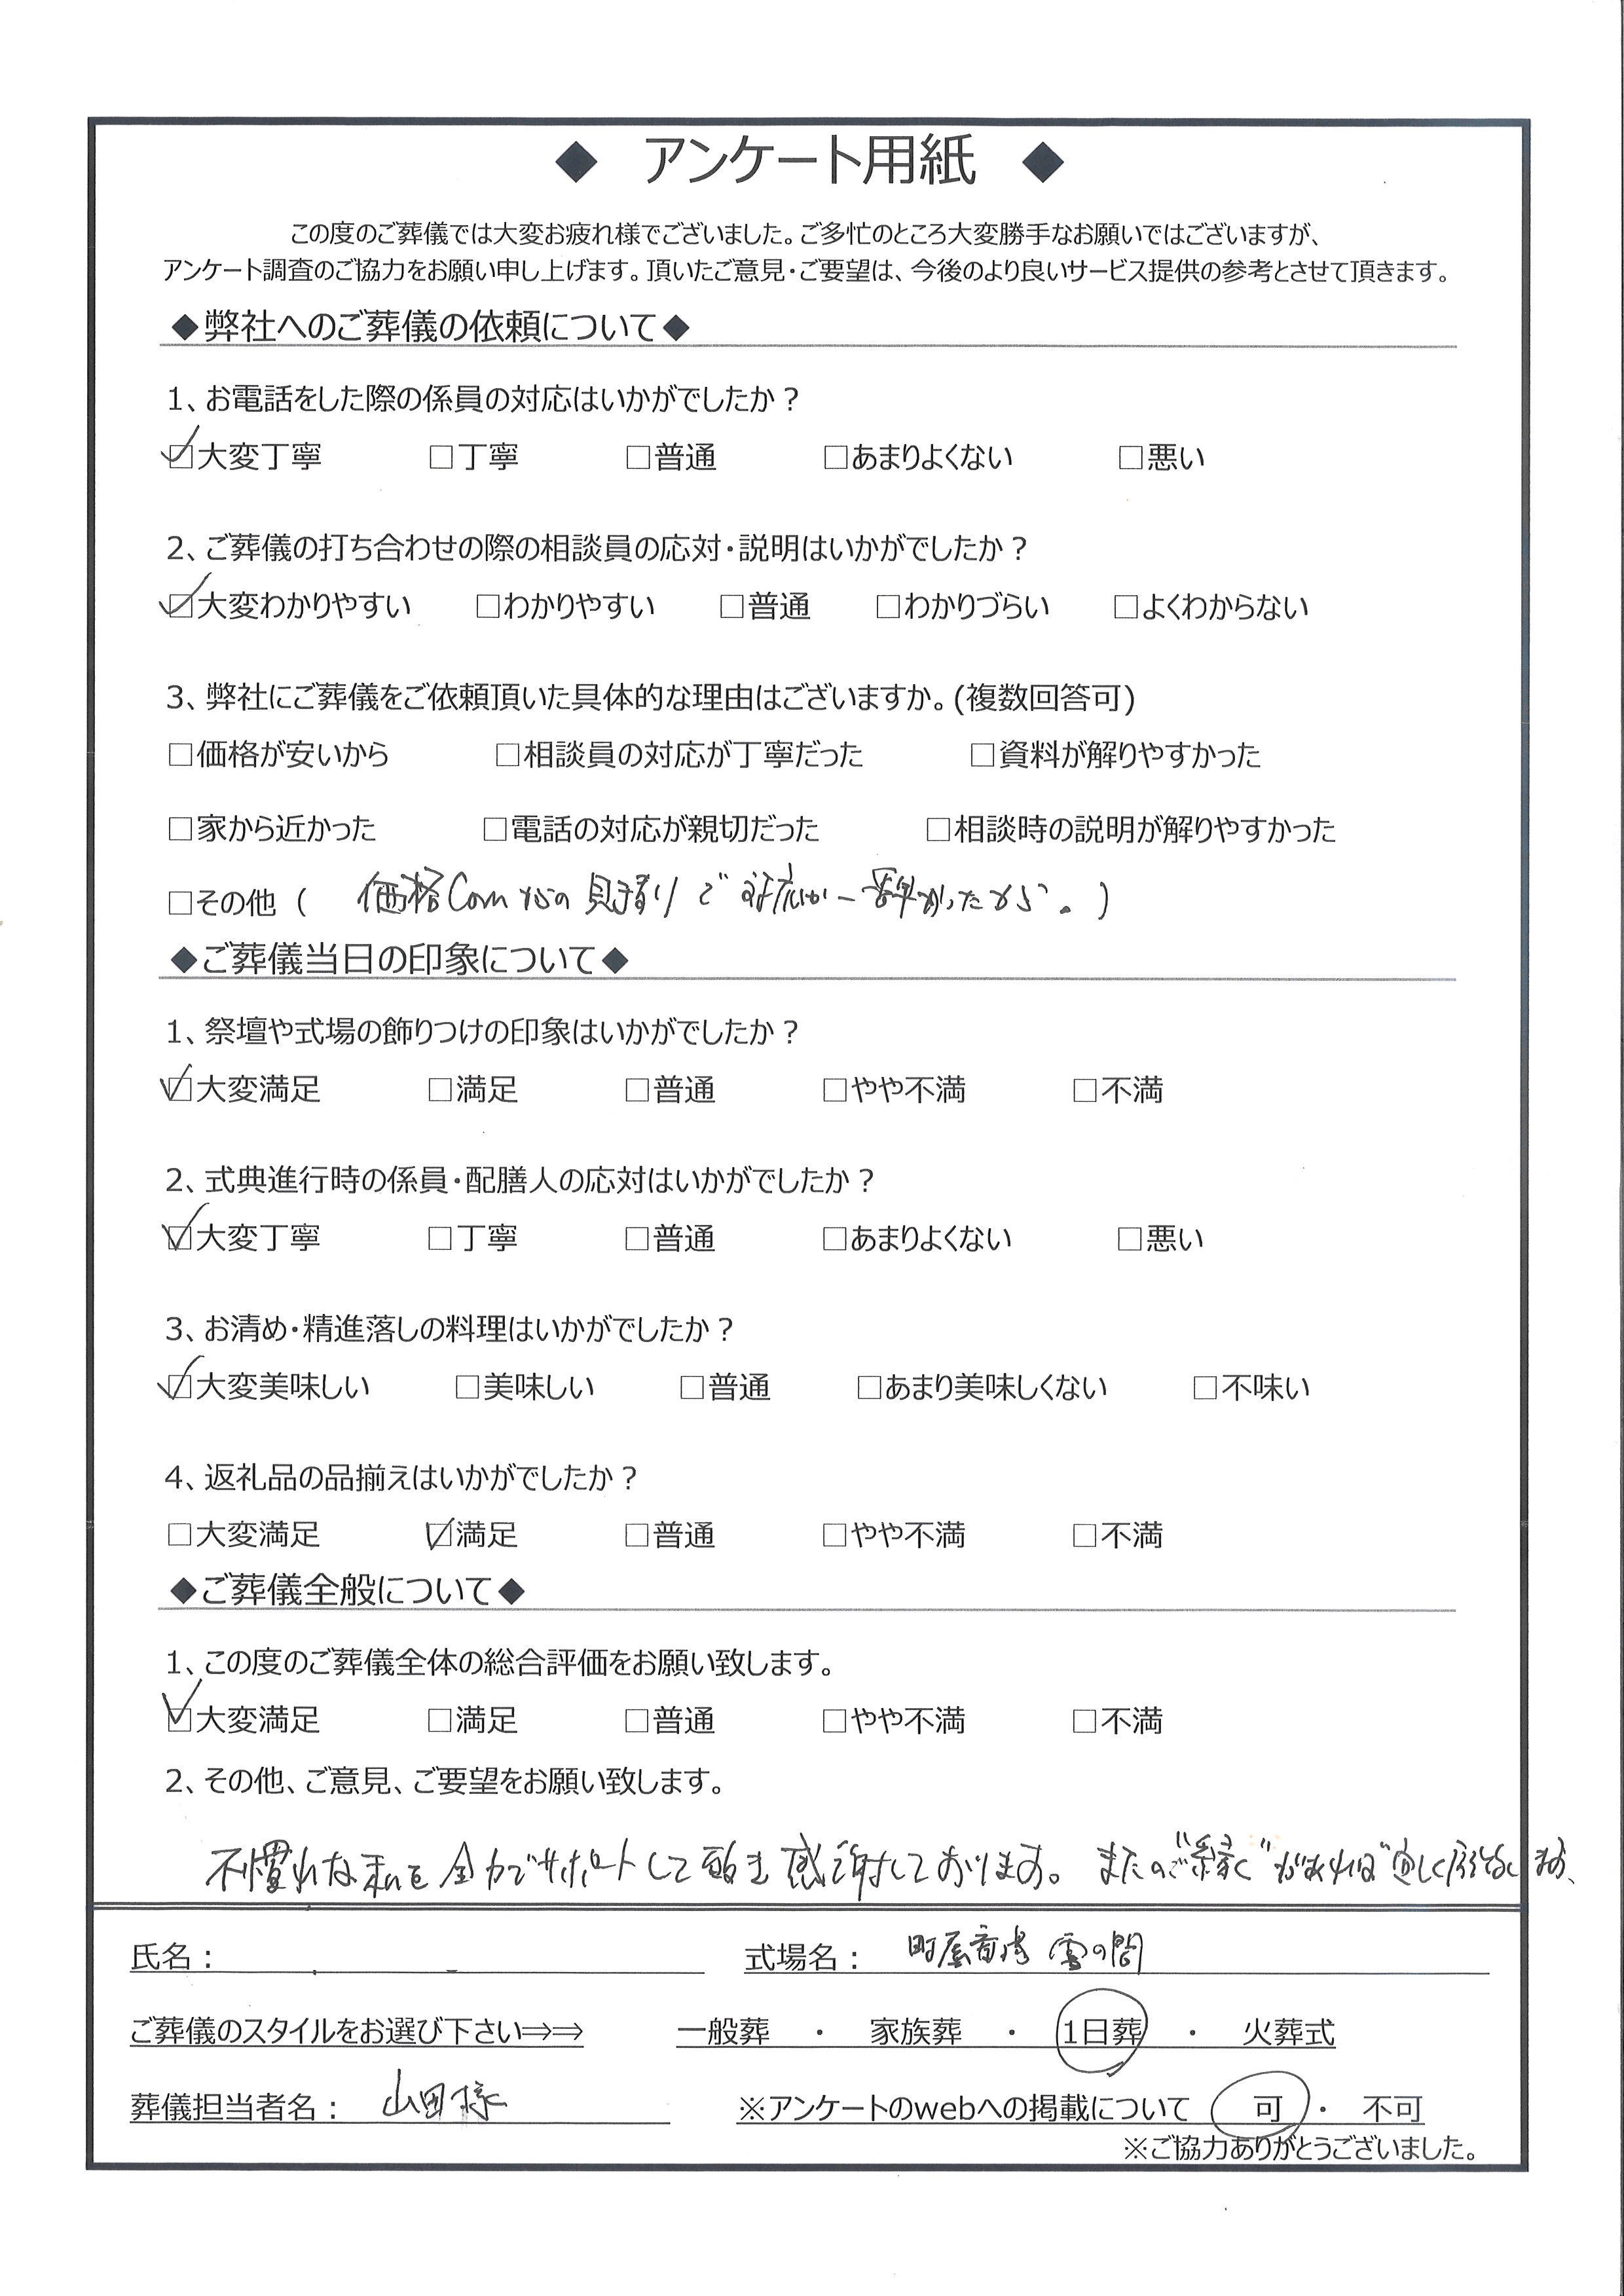 ◆ アンケート用紙 ◆
この度のご葬儀では大変お疲れ様でございました。ご多忙のところ大変勝手なお願いではございますが、
アンケート調査のご協力をお願い申し上げます。頂いたご意見・ご要望は、今後のより良いサービス提供の参考とさせて頂きます。
◆弊社へのご葬儀の依頼について◆
1、お電話をした際の係員の対応はいかがでしたか？
☑大変丁寧 □丁寧 □普通 □あまりよくない □悪い
2、ご葬儀の打ち合わせの際の相談員の応対・説明はいかがでしたか？
☑大変わかりやすい □わかりやすい □普通 □わかりづらい □よくわからない
3、弊社にご葬儀をご依頼頂いた具体的な理由はございますか。(複数回答可)
□価格が安いから □相談員の対応が丁寧だった □資料が解りやすかった
□家から近かった □電話の対応が親切だった □相談時の説明が解りやすかった
□その他 ( 価格Comからの見積りで対応が一番早かったから。)
◆ご葬儀当日の印象について◆
1、祭壇や式場の飾りつけの印象はいかがでしたか？
☑大変満足 □満足 □普通 □やや不満 □不満
2、式典進行時の係員・配膳人の応対はいかがでしたか？
☑大変丁寧 □丁寧 □普通 □あまりよくない □悪い
3、お清め・精進落しの料理はいかがでしたか？
☑大変美味しい □美味しい □普通 □あまり美味しくない □不味い
4、返礼品の品揃えはいかがでしたか？
□大変満足 ☑満足 □普通 □やや不満 □不満
◆ご葬儀全般について◆
1、この度のご葬儀全体の総合評価をお願い致します。
☑大変満足 □満足 □普通 □やや不満 □不満
2、その他、ご意見、ご要望をお願い致します。
不慣れな私を全力でサポートして頂き感謝しております。またのご"縁"があれば宜しくお願い致します、
氏名： 式場名： 町屋斎場 雲の間
ご葬儀のスタイルをお選び下さい⇒⇒ 一般葬 ・ 家族葬 ・ 1日葬 ・ 火葬式
葬儀担当者名： 山田様 ※アンケートのwebへの掲載について 可 ・ 不可
※ご協力ありがとうございました。